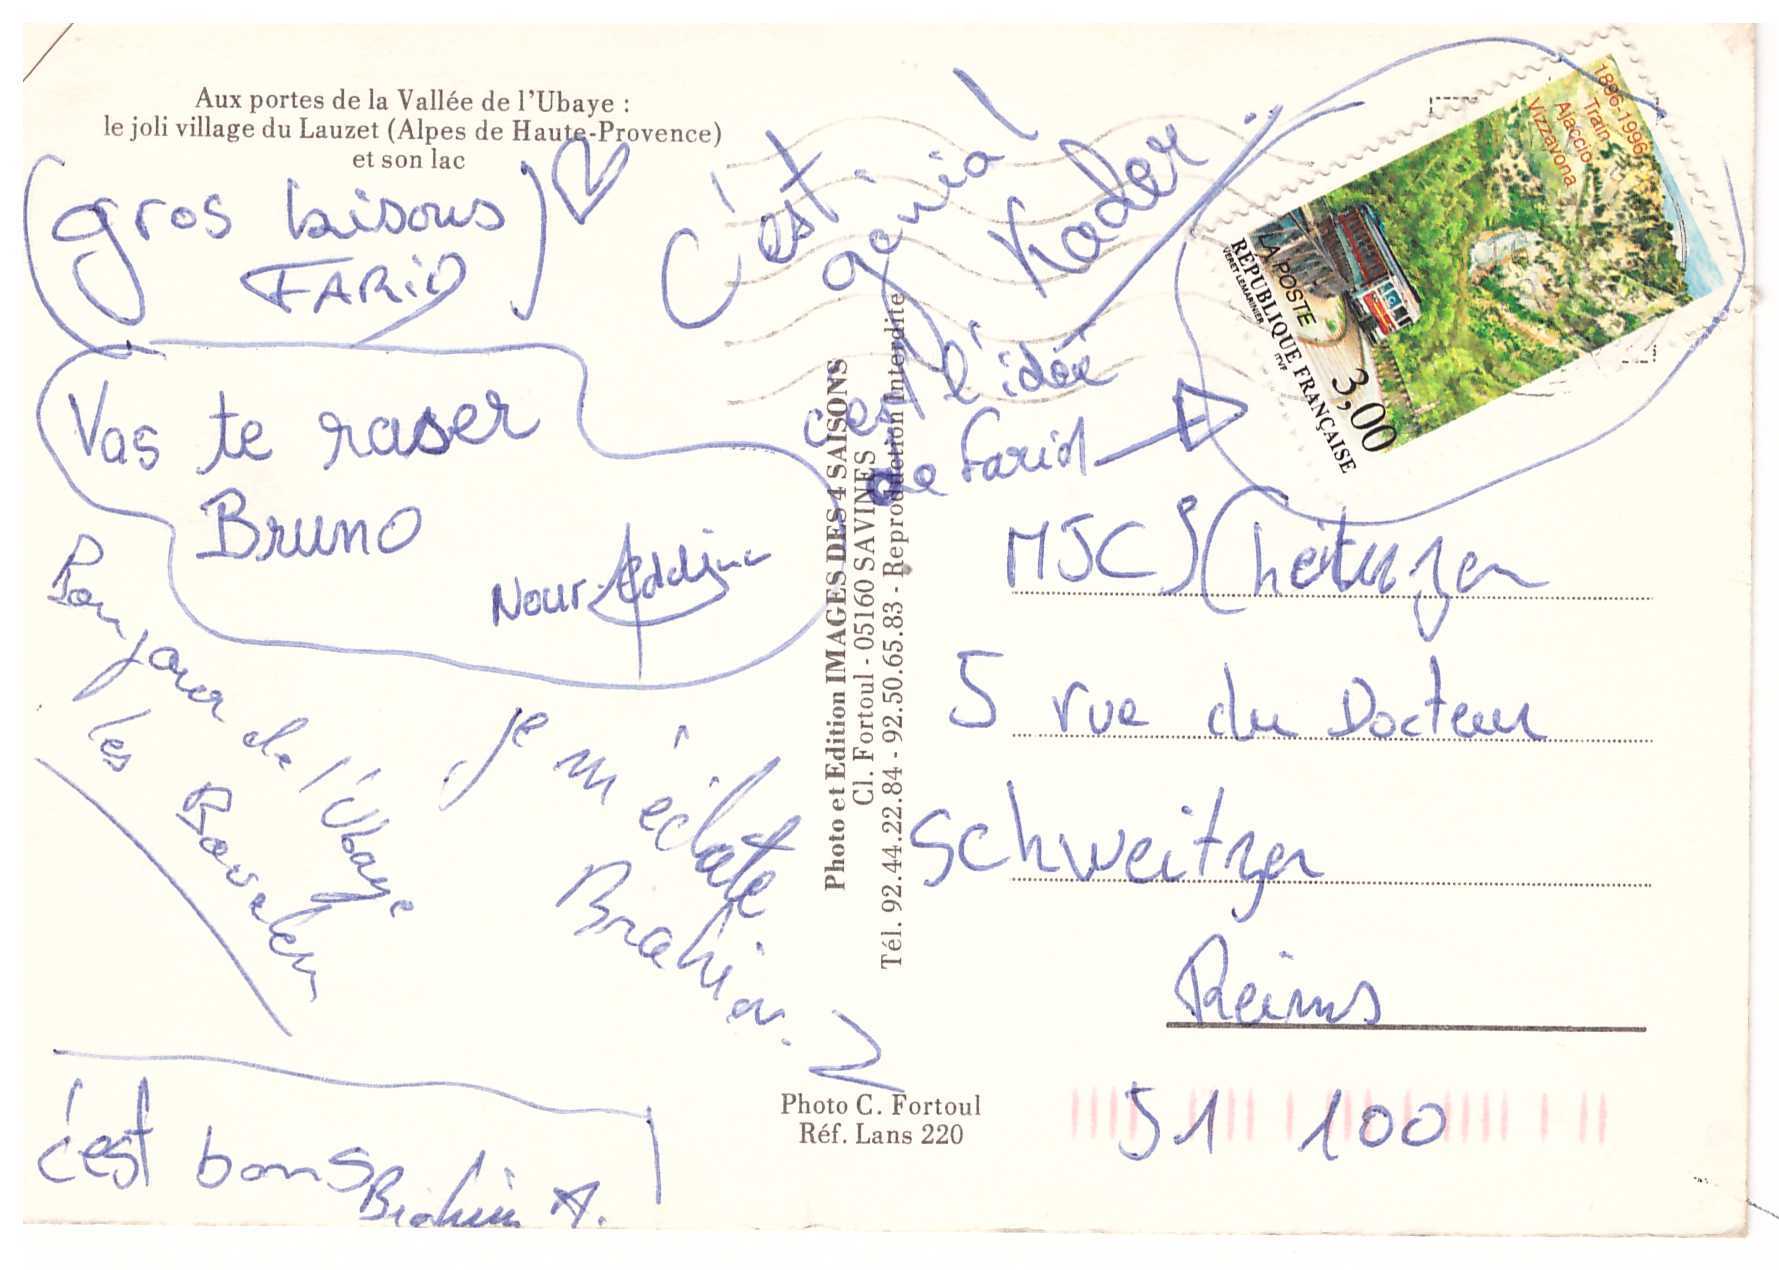 Aux portes de la Vallée de l'Ubaye :
le joli village du Lauzet (Alpes de Haute-Provence)
et son lac
(gros bisous
FARID)
Vas te raser
Bruno
Nour-Eddine
Bonjour de l'Ubaye
les
je m'éclate
Brahim
c'est bons
Brahim A.
C'est
génial
Kader
c'est l'idée
de Farid
Photo et Edition IMAGES DES 4 SAISONS
Cl. Fortoul - 05160 SAVINES
Tél. 92.44.22.84 - 92.50.65.83 - Reproduction Interdite
Photo C. Fortoul
Réf. Lans 220
1896-1996
Train
Ajaccio
Vizzavona
LA POSTE
REPUBLIQUE FRANÇAISE
VERET LEMARINIER
ITVF
3,00
MJC
5 rue du Docteur
Schweitzer
Reims
51 100